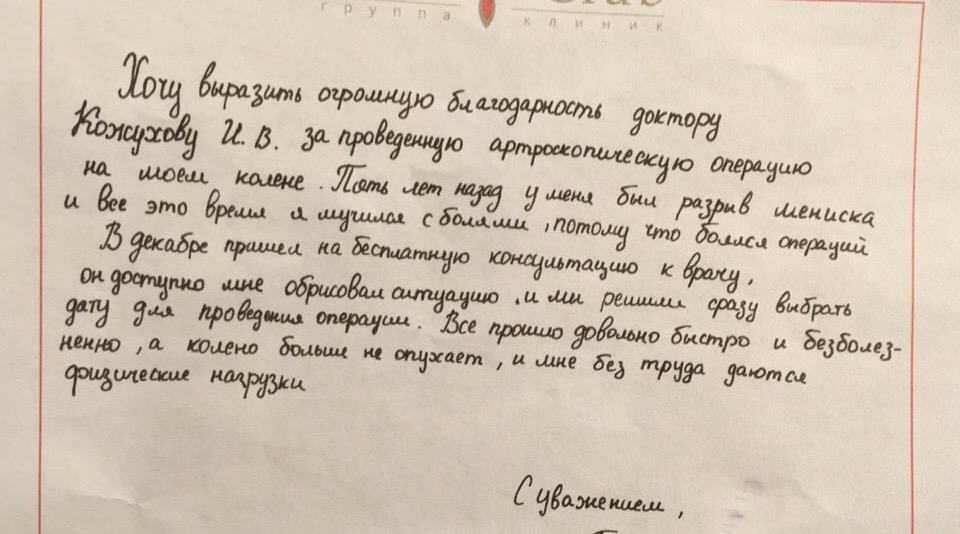 группа клиник
Хочу выразить огромную благодарность доктору
Кожухову И.В. за проведенную артроскопическую операцию
на моем колене. Пять лет назад у меня был разрыв мениска
и все это время я мучился с болями, потому что боялся операций
В декабре пришел на бесплатную консультацию к врачу,
он доступно мне обрисовал ситуацию, и мы решили сразу выбрать
дату для проведения операции. Все прошло довольно быстро и безболез-
ненно, а колено больше не опухает, и мне без труда даются
физические нагрузки
С уважением,